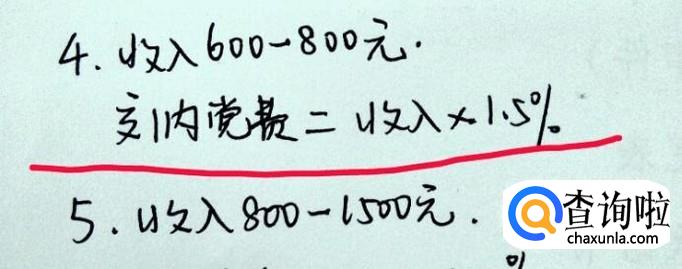 4. 收入600-800元.
交纳党费=收入×1.5%
5. 收入800-1500元.
%
查询啦
chaxunla.com